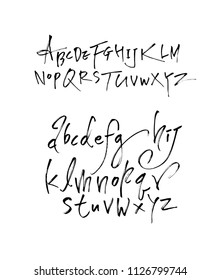 ABCDEFGHIJKLM
NOPQRSTUVWXYZ
abcdefghij
klmnopqr
stuvwxyz
shutterstock.com · 1126799744